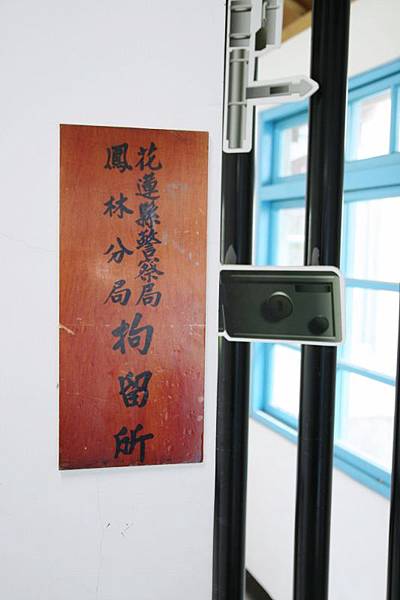 花蓮縣警察局
鳳林分局
拘留所